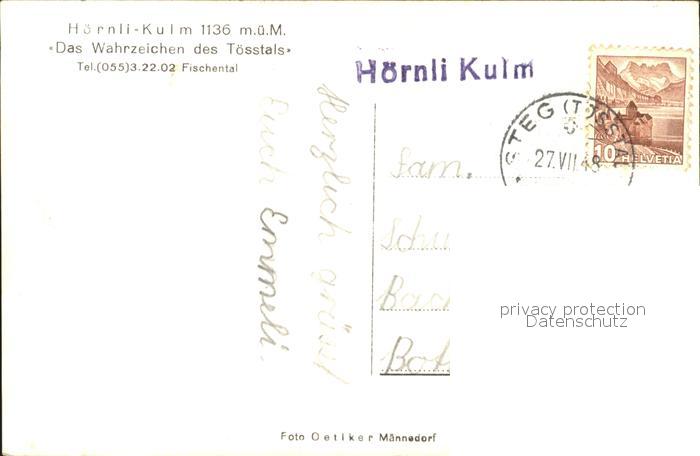 Hörnli-Kulm 1136 m.ü.M.
«Das Wahrzeichen des Tösstals»
Tel.(055)3.22.02 Fischental
Hörnli Kulm
STEG (TÖSSTAL
27.VII.48
10 HELVETIA
Herzlich grüsst
Euch Emmeli.
Fam.
Schu
Bac
Bot
privacy protection
Datenschutz
Foto Oetiker Männedorf